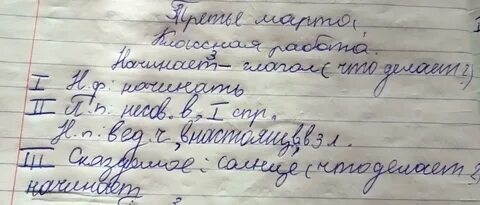 Третье марта.
Классная работа.
Начинает³ – глагол (что делает?)
I Н.ф: начинать
II П.п: несов. в, I спр.
Н.п: вед.ч, в настоящ, в 3 л.
III Сказуемое: солнце (что делает?)
начинает